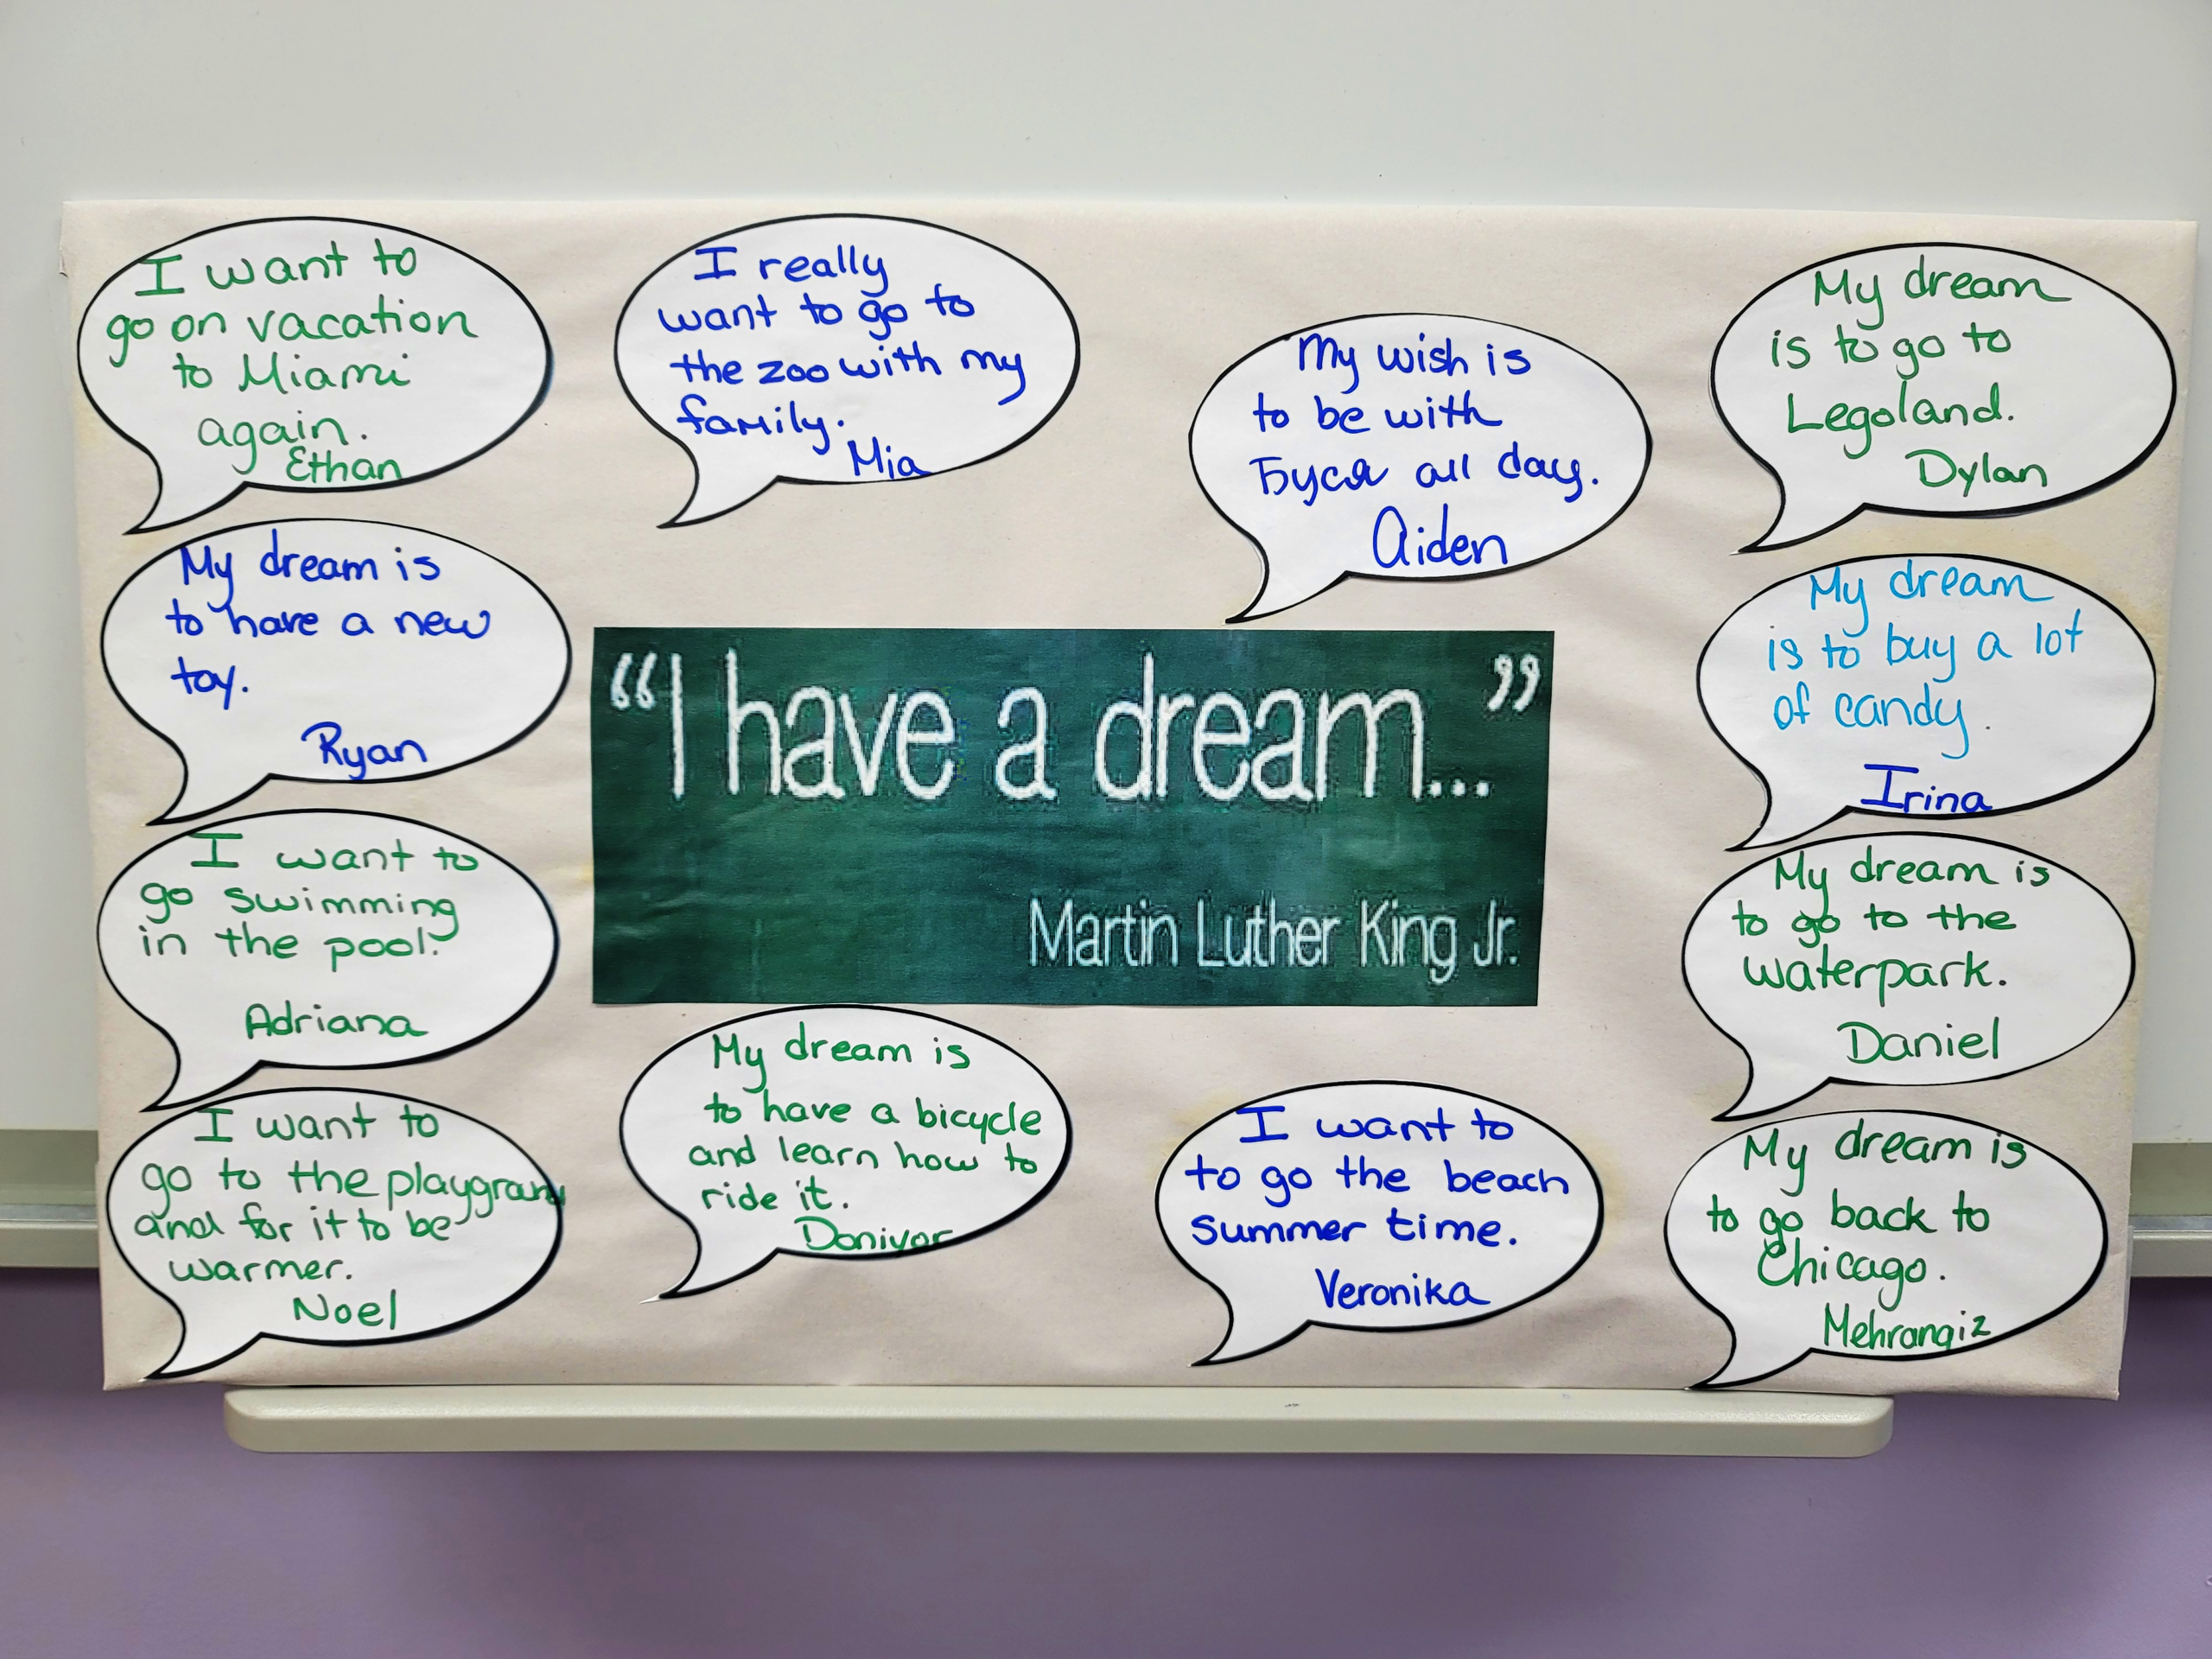 I want to
go on vacation
to Miami
again.
Ethan
I really
want to go to
the zoo with my
family.
Mia
My wish is
to be with
Буся all day.
Aiden
My dream
is to go to
Legoland.
Dylan
My dream is
to have a new
toy.
Ryan
"I have a dream..."
Martin Luther King Jr.
My dream
is to buy a lot
of candy.
Irina
I want to
go swimming
in the pool.
Adriana
My dream is
to go to the
waterpark.
Daniel
I want to
go to the
and for it to be
warmer.
Noel
My dream is
to have a bicycle
and learn how to
ride it.
I want to
to go the beach
summer time.
Veronika
My dream is
to go back to
Chicago.
Mehrangiz